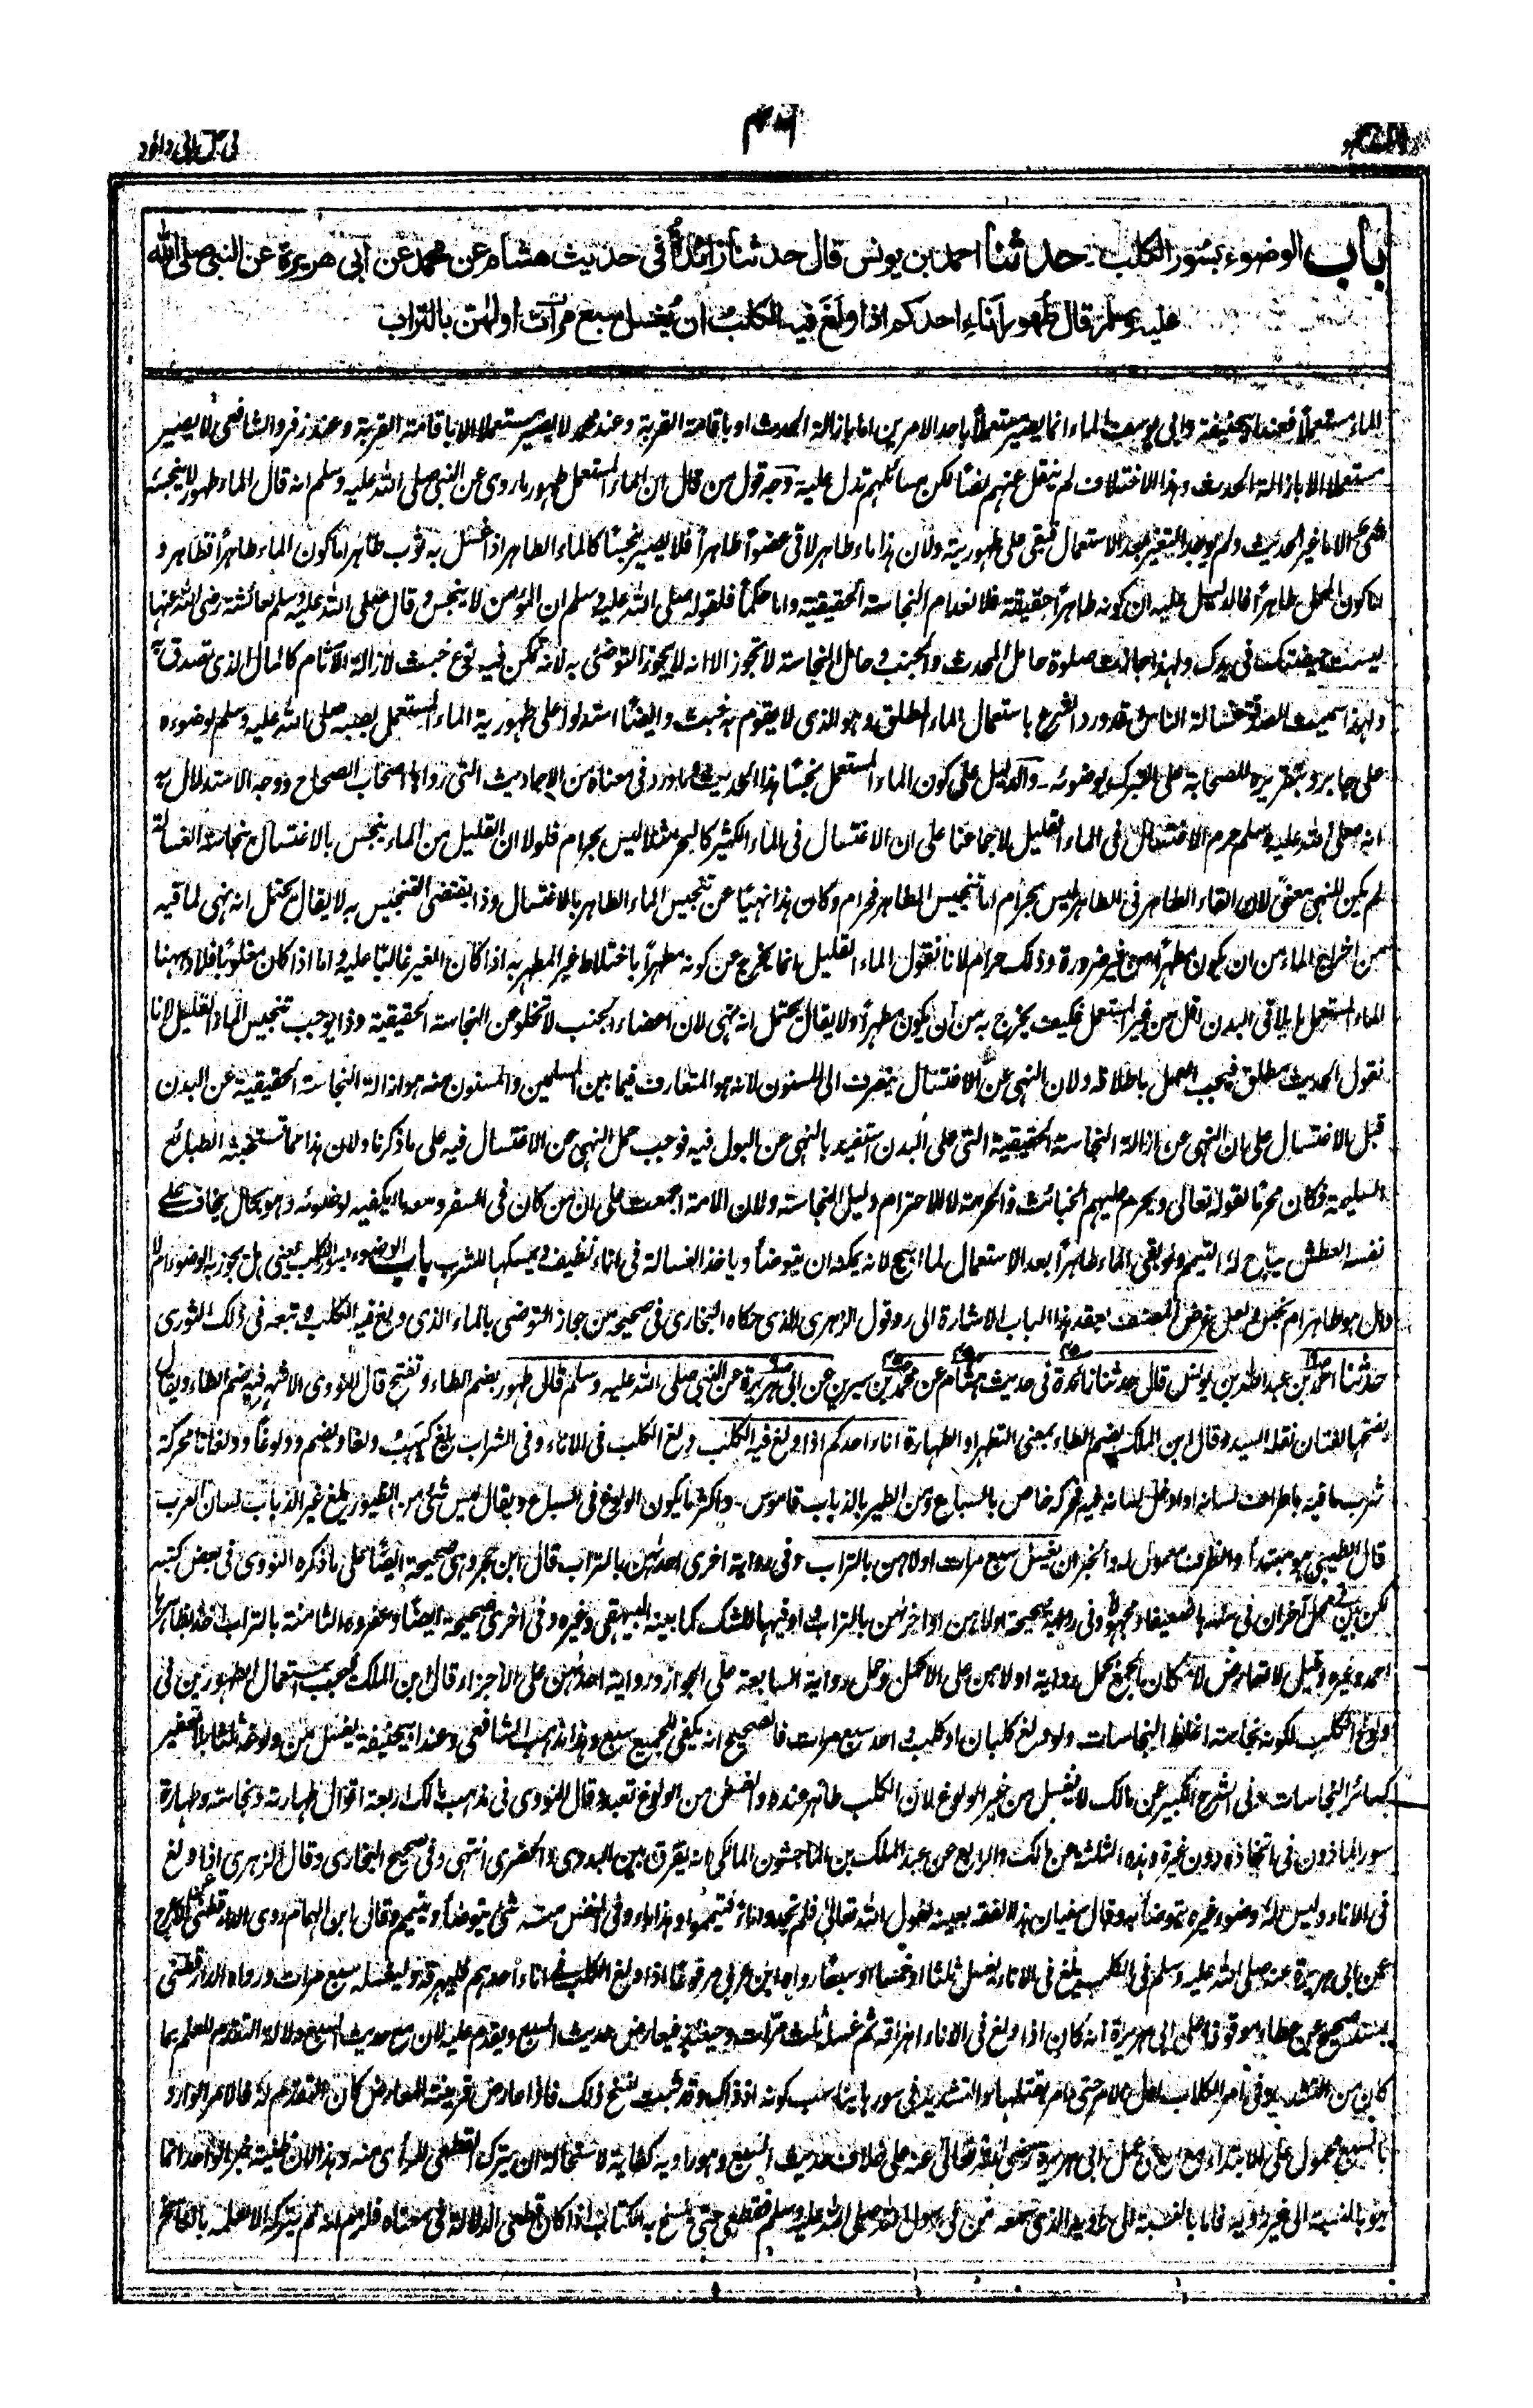 باب الوضوء بسؤر الكلب - حدثنا احمد بن يونس قال حدثنا زائدةُ فى حديث هشام عن محمد عن ابى هريرة عن النبى صلى الله
عليه وسلم قال طُهور اناءِ احدكم اذا ولَغَ فيه الكلبُ ان يُغسل سبع مرات اولٰهن بالتراب
الماء مستعملاً فعند ابيحنيفة وابى يوسف الماء انما يصير مستعملاً باحد الامرين اما بازالة الحدث او باقامة القربة وعند محمد لا يصير مستعملا الا باقامة القربة وعند زفر والشافعى لا يصير
مستعملا الا بازالة الحدث وهذا الاختلاف لم ينقل عنهم نصاً لكن مسائلهم تدل عليه وجه قول من قال ان الماء المستعمل طهور ما روى عن النبى صلى الله عليه وسلم انه قال الماء طهور لا ينجسه
شئ الا ما غير الحديث ولم يوجد التغير بعد الاستعمال فبقى على طهوريته ولان هذا ماء طاهر لاقى عضواً طاهراً فلا يصير نجسًا كالماء الطاهر اذا غسل به ثوب طاهر اما كون الماء طاهراً فظاهر و
اما كون المحل طاهراً فالدليل عليه ان كونه طاهراً حقيقة فلانعدام النجاسة الحقيقية واما حكماً فلقوله صلى الله عليه وسلم ان المؤمن لا ينجس وقال صلى الله عليه وسلم لعائشة رضى الله عنها
ليست حيضتك فى يدك ولهذا جازت صلوة حامل المحدث والجنب وحامل النجاسة لا تجوز الا انه لا يجوز التوضئ به لانه تمكن فيه نوع خبث لازالة الآثام كالمال الذى تصدق به
ولهذا سميت الصدقة غسالة الناس قد ورد الشرع باستعمال الماء المطلق وهو الذى لا يقوم به خبث وايضًا استدلوا على طهورية الماء المستعمل بصبه صلى الله عليه وسلم لوضوءه
على جابر وبتقريره للصحابة على التبرك بوضوئه - والدليل على كون الماء المستعمل نجسًا هذا الحديث وما ورد فى معناه من الاحاديث التى رواها اصحاب الصحاح ووجه الاستدلال به
انه صلى الله عليه وسلم حرم الاغتسال فى الماء القليل لاجماعنا على ان الاغتسال فى الماء الكثير كالبحر مثلا ليس بحرام فلولا ان القليل من الماء ينجس بالاغتسال بنجاسة الغسالة
لم يكن للنهى معنىً لان القاء الطاهر فى الطاهر ليس بحرام اما تنجيس الطاهر فحرام وكان هذا نهيًا عن تنجيس الماء الطاهر بالاغتسال وذا يقتضى التنجيس به لا يقال يحتمل انه نهى لما فيه
من اخراج الماء من ان يكون مطهراً من غير ضرورة وذلك حرام لانا نقول الماء القليل انما يخرج عن كونه مطهراً باختلاط غير المطهر به اذا كان المغير غالبًا عليه واما اذا كان مغلوبًا فلا وههنا
الماء المستعمل ما يلاقى البدن اقل من غير المستعمل فكيف يخرج به من ان يكون مطهراً ولا يقال يحتمل انه نهى لان اعضاء الجنب لا تخلو عن النجاسة الحقيقية وذا يوجب تنجيس الماء القليل لانا
نقول الحديث مطلق فيجب العمل باطلاقه ولان النهى عن الاغتسال ينصرف الى المسنون لانه هو المتعارف فيما بين المسلمين والمسنون منه هو ازالة النجاسة الحقيقية عن البدن
قبل الاغتسال على ان النهى عن ازالة النجاسة الحقيقية التى على البدن استفيد بالنهى عن البول فيه فوجب حمل النهى عن الاغتسال فيه على ما ذكرنا ولان هذا مما تستخبثه الطبائع
السليمة فكان محرمًا لقوله تعالى ويحرم عليهم الخبائث والحرمة لا للاحترام دليل النجاسة ولان الامة اجمعت على ان من كان فى السفر ومعه ما يكفيه لوضوئه وهو بحال يخاف على
نفسه العطش يباح له التيمم ولو بقى الماء طاهراً بعد الاستعمال لما ابيح لانه يمكنه ان يتوضأ وياخذ الغسالة فى اناء نظيف ويمسكها للشرب باب الوضوء بسؤر الكلب يعنى هل يجوز به الوضوء ام لا
وهل هو طاهر ام نجس ولعل غرض المصنف بعقد هذا الباب الاشارة الى رد قول الزهرى الذى حكاه البخارى فى صحيحه من جاز التوضى بالماء الذى ولغ فيه الكلب وتبعه فى ذلك الثورى
حدثنا احمد بن عبد الله بن يونس قال حدثنا زائدة فى حديث هشام عن محمد بن سيرين عن ابى هريرة عن النبى صلى الله عليه وسلم قال طهور بضم الطاء وتفتح قال النووى الاشهر فيه ضم الطاء ويقال
بفتحها لغتان نقله السيد وقال ابن الملك بضم الطاء بمعنى التطهر او الطهارة اناء احدكم اذا ولغ فيه الكلب ولغ الكلب فى الاناء وفى الشراب يلغ كيهب ولغا ويضم وولوغًا وولغانا محركة
شرب ما فيه باطراف لسانه او ادخل لسانه فيه فحركه خاص بالسباع ومن الطير بالذباب قاموس - واكثر ما يكون الولوغ فى السباع ويقال ليس شئ من الطيور يلغ غير الذباب لسان العرب
قال الطيبى هو مبتدأ والظرف معمول له والخبر ان يغسل سبع مرات اولاهن بالتراب وفى رواية اخرى احدٰهن بالتراب قال ابن حجر وهى صحيحة ايضًا على ما ذكره النووى فى بعض كتبه
لكن بين فى محل آخر ان فى سندها ضعيفا ومجهولاً وفى رواية صحيحة اولاهن او اخراهن بالتراب واو فيها للشك كما بينه البيهقى وغيره وفى اخرى صحيحة ايضًا وعفروه الثامنة بالتراب اخذ بظاهرها
احمد وغيره وقيل لا تعارض لامكان الجمع بحمل رواية اولاهن على الاكمل وحمل رواية السابعة على الجواز ورواية احدٰهن على الاجزاء وقال ابن الملك فيجب استعمال الطهورين فى
ولوغ الكلب لكونه نجاسته اغلظ النجاسات ولو ولغ كلبان او كلب واحد سبع مرات فالصحيح انه يكفى للجميع سبع وهذا مذهب الشافعى وعند ابيحنيفة يغسل من ولوغه ثلثا بلا تعفير
كسائر النجاسات وفى الشرح الكبير عن مالك لا يغسل من غير الولوغ لان الكلب طاهر عنده والغسل من الولوغ تعبد وقال النووى فى مذهب مالك اربعة اقوال طهارته ونجاسته وطهارة
سور الماذون فى اتخاذه دون غيره وهذه الثلثة عن مالك والرابع عن عبد الملك بن الماجشون المالكى انه يفرق بين البدوى والحضرى انتهى وفى صحيح البخارى وقال الزهرى اذا ولغ
فى الاناء وليس له وضوء غيره يتوضأ به وقال سفيان هذا الفقه بعينه لقول الله تعالى فلم تجدوا ماءً فتيمموا وهذا ماء وفى النفس منه شئ يتوضأ ويتيمم وقال ابن الهمام روى الدار قطنى عن الاعرج
عن ابى هريرة عنه صلى الله عليه وسلم فى الكلب يلغ فى الاناء يغسل ثلثا او خمسا او سبعًا رواه ابن عربى مرفوعًا اذا ولغ الكلب فى اناء احدهم فليهرقه وليغسله سبع مرات ورواه الدارقطنى
بسند صحيح عن عطاء موقوفا على ابى هريرة انه كان اذا ولغ فى الاناء اهراقه ثم غسله ثلث مرات وحينئذ فيعارض حديث السبع ويقدم عليه لان مع حديث السبع دلالة التقدم للعلم بما
كان من التشديد فى امر الكلاب اول الامر حتى امر بقتلها والتشديد فى سورها يناسب كونه اذ ذاك وقد ثبت نسخ ذلك فاذا عارض قرينه المعارض كان التقدم له فالامر الوارد
بالسبع محمول على الابتداء مع ان فى عمل ابى هريرة رضى الله تعالى عنه على خلاف حديث السبع وهو راويه كفاية لاستحالة ان يترك القطعى للرأى منه وهذا لان ظنية خبر الواحد انما
هو بالنسبة الى غير راويه فاما بالنسبة الى راويه الذى سمعه من فى رسول الله صلى الله عليه وسلم فقطعى حتى ينسخ به الكتاب اذا كان قطعى الدلالة فى معناه فلزم انه لم يتركه الا لعلمه بالناسخ